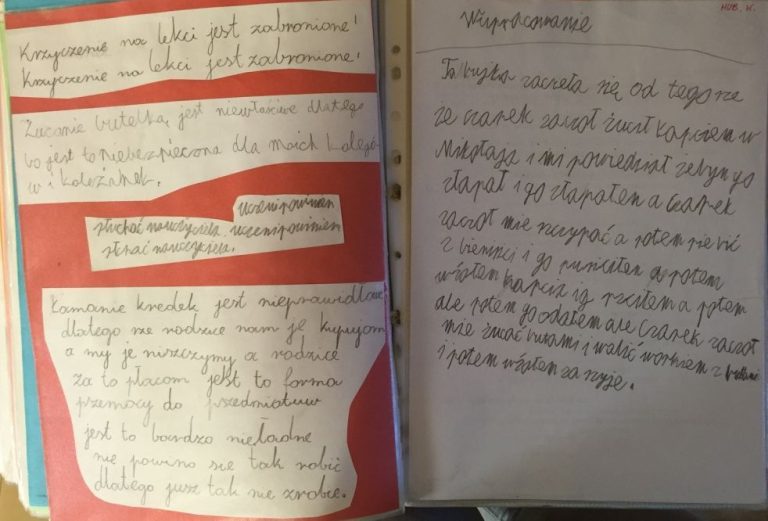 Krzyczenie na lekci jest zabronione!
Krzyczenie na lekci jest zabronione!
Żucanie butelką jest niewłaściwe dlatego
bo jest to niebezpieczna dla moich kolegó
w i koleżanek.
Uczeń powinien
słuchać nauczyciela. uczeń powinien
słuchać nauczyciela.
Łamanie kredek jest nieprawidłowe
dlatego rze rodzice nam je kupujom
a my je niszczymy a rodzice
za to płacom jest to forma
przemocy do przedmiatuw
jest to bardzo nieładne
nie powino sie tak robić
dlatego jusz tak nie zrobie.
HUB. K.
Wypracowanie
Ta bujka zaczeła się od tego rze
że czarek zaczoł żucił kapciem w
Mikołaja i mi powiedział żebym go
złapał i go złapałem a Czarek
zaczoł mie szczypać a potem sie bić
z i go puściłem a potem
wźołem kapcia i rzciłem a potem
ale potem go oddałem ale Czarek zaczoł
mie żucać butami i walić workiem z butami
i potem wźołem za szyje.